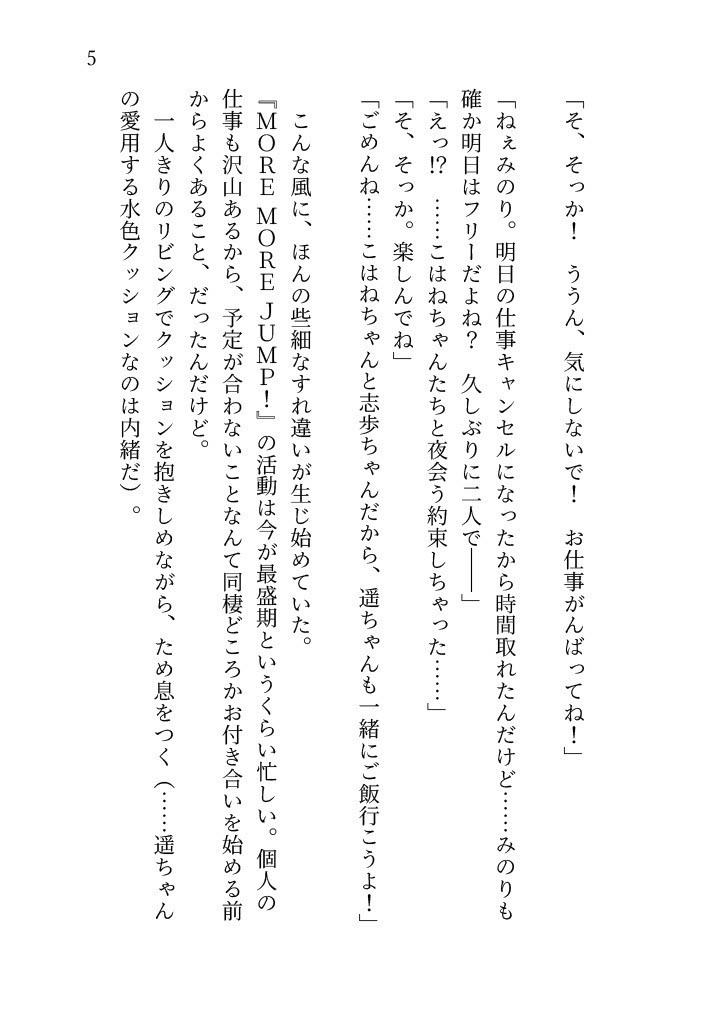 5
「そ、そっか！　ううん、気にしないで！　お仕事がんばってね！」
「ねぇみのり。明日の仕事キャンセルになったから時間取れたんだけど……みのりも
確か明日はフリーだよね？　久しぶりに二人で――」
「えっ!?　……こはねちゃんたちと夜会う約束しちゃった……」
「そ、そっか。楽しんでね」
「ごめんね……こはねちゃんと志歩ちゃんだから、遥ちゃんも一緒にご飯行こうよ！」
こんな風に、ほんの些細なすれ違いが生じ始めていた。
『ＭＯＲＥ ＭＯＲＥ ＪＵＭＰ！』の活動は今が最盛期というくらい忙しい。個人の
仕事も沢山あるから、予定が合わないことなんて同棲どころかお付き合いを始める前
からよくあること、だったんだけど。
一人きりのリビングでクッションを抱きしめながら、ため息をつく（……遥ちゃん
の愛用する水色クッションなのは内緒だ）。